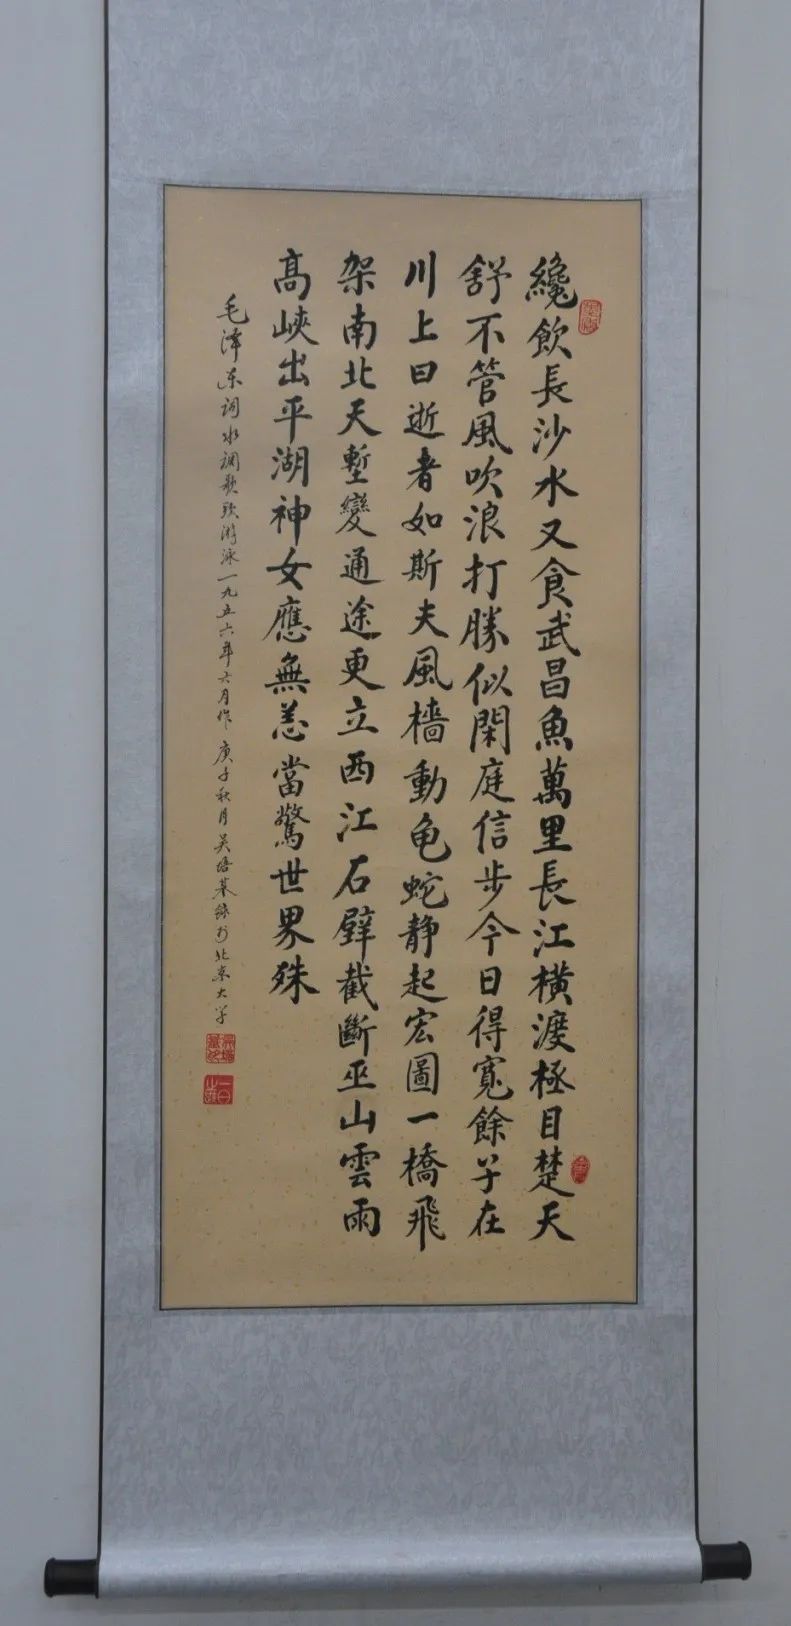 纔飲長沙水又食武昌魚萬里長江橫渡極目楚天
舒不管風吹浪打勝似閑庭信步今日得寬餘子在
川上曰逝者如斯夫風檣動龟蛇静起宏圖一橋飛
架南北天塹變通途更立西江石壁截斷巫山雲雨
高峽出平湖神女應無恙當驚世界殊
毛泽东词水调歌头游泳一九五六年六月作 庚子秋月 吴培基 於北京大学